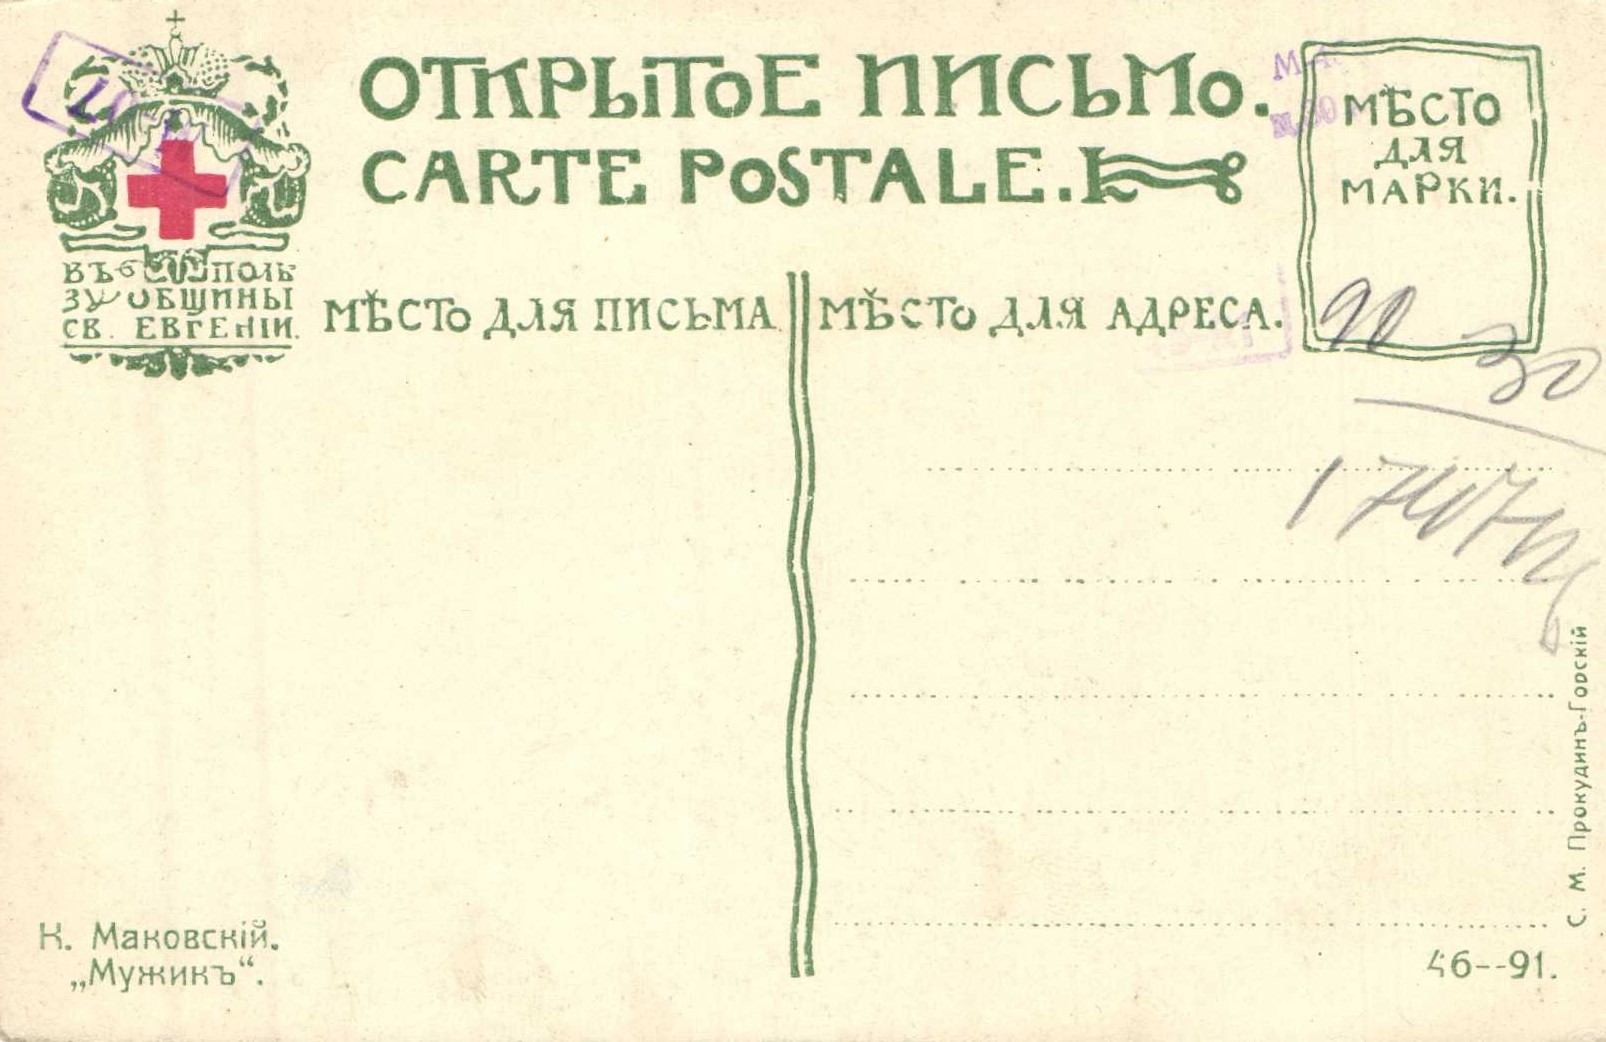 ОТКРЫТОЕ ПИСЬМО.
CARTE POSTALE.
МѢСТО
ДЛЯ
МАРКИ.
ВЪ ПОЛЬ
ЗУ ОБЩИНЫ
СВ. ЕВГЕНІИ.
МѢСТО ДЛЯ ПИСЬМА
МѢСТО ДЛЯ АДРЕСА.
90
30
К. Маковскій.
„Мужикъ“.
46--91.
С. М. Прокудинъ-Горскій